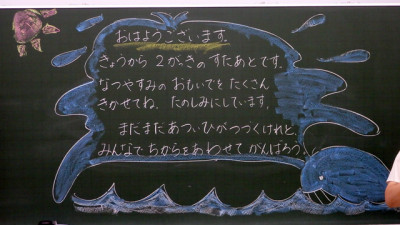 おはようございます。
きょうから 2がっきの すたあとです。
なつやすみの おもいでを たくさん
きかせてね。たのしみにしています。
まだまだ あついひが つづくけれど、
みんなで ちからを あわせて がんばろう。